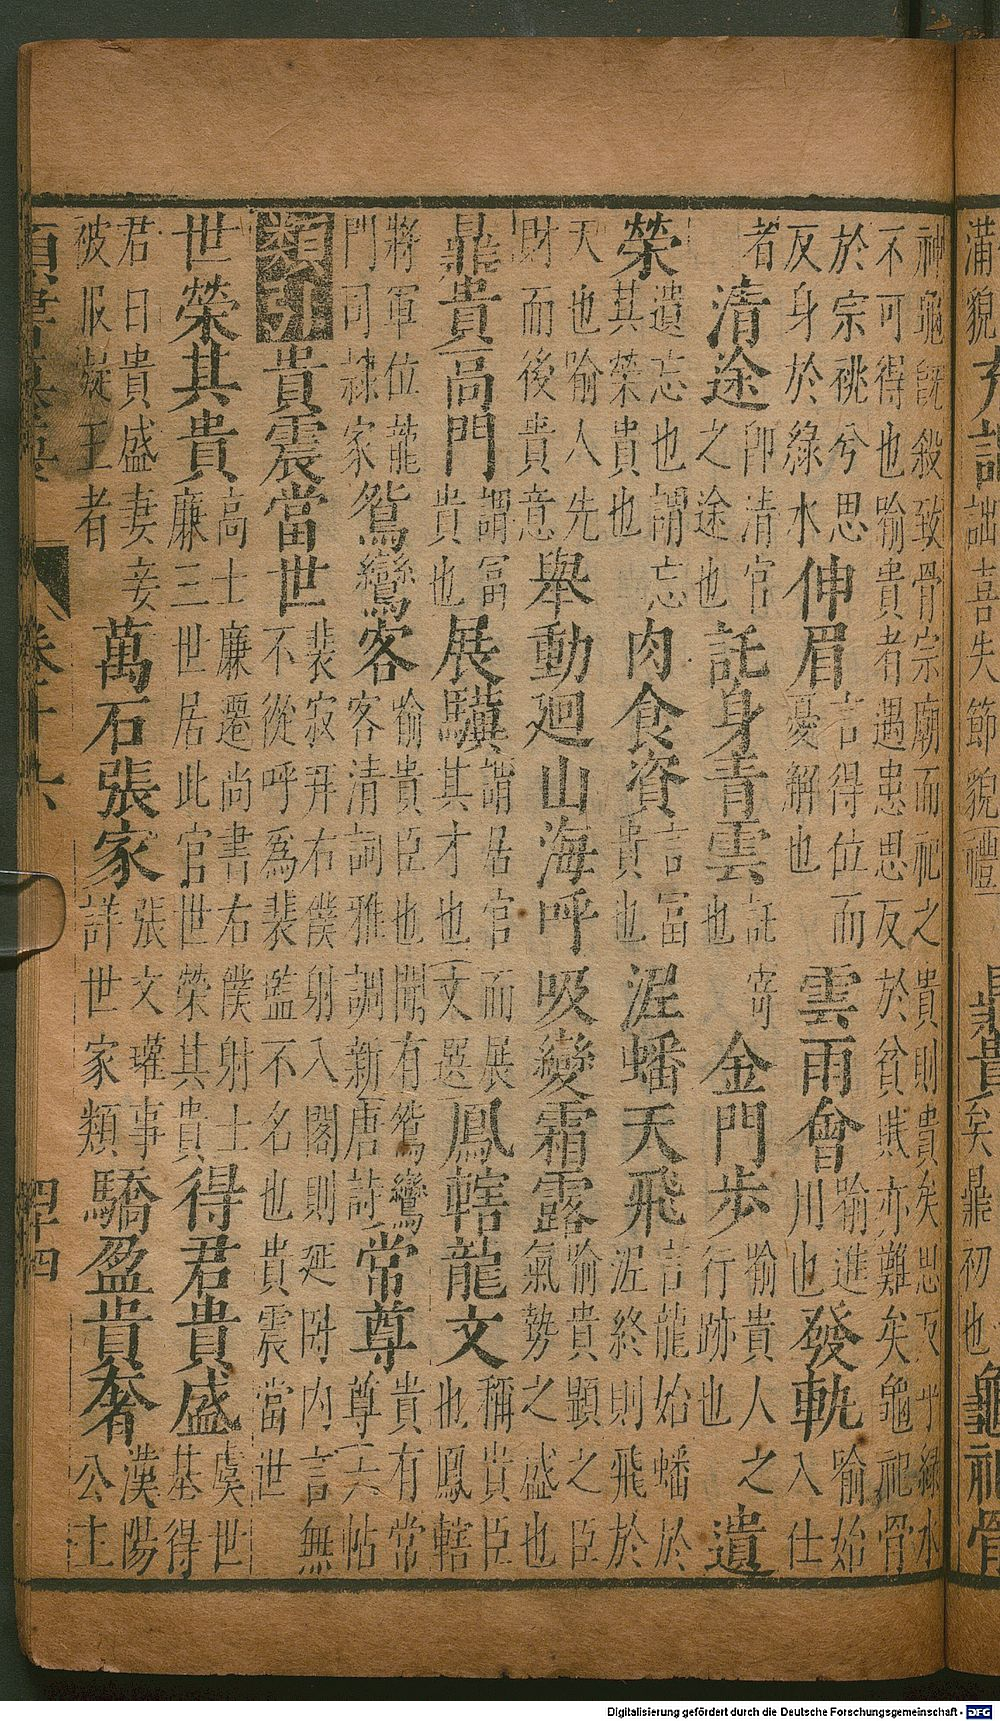 神龜旣殺致骨宗廟而祀之貴則貴矣思反乎綠水
不可得也喻貴者遇患思反於貧賤亦難矣龜祀骨
於宗祧兮思反身於綠水伸眉言得位而憂解也雲雨會喻進川也發軌喻始入仕
者清途即清官之途也託身青雲託寄也金門步喻貴人之行跡也遺
榮遺忘也謂忘其榮貴也肉食資言冨貴也涅蟠天飛言龍始蟠於涅終則飛於
天也喻人先財而後貴意舉動廻山海呼吸變霜露喻貴顯之臣氣勢之盛也
鼎貴高門謂冨貴也展驥謂居官而展其才也文選鳳轄龍文稱貴臣也鳳轄
將軍位龍門司隷家鴛鸞客喻貴臣也閒有鴛鸞客清詞雅調新唐詩常尊貴有常尊六帖
類引貴震當世裴寂再右僕射入閣則延附內言無不從呼為裴監不名也貴震當世
世榮其貴高士廉遷尚書右僕射士廉三世居此官世榮其貴得君貴盛虞世基得
君日貴盛妻妾被服擬王者萬石張家張文瓘事詳世家類驕盈貴奢漢陽公主
四十四
Digitalisierung gefördert durch die Deutsche Forschungsgemeinschaft - DFG